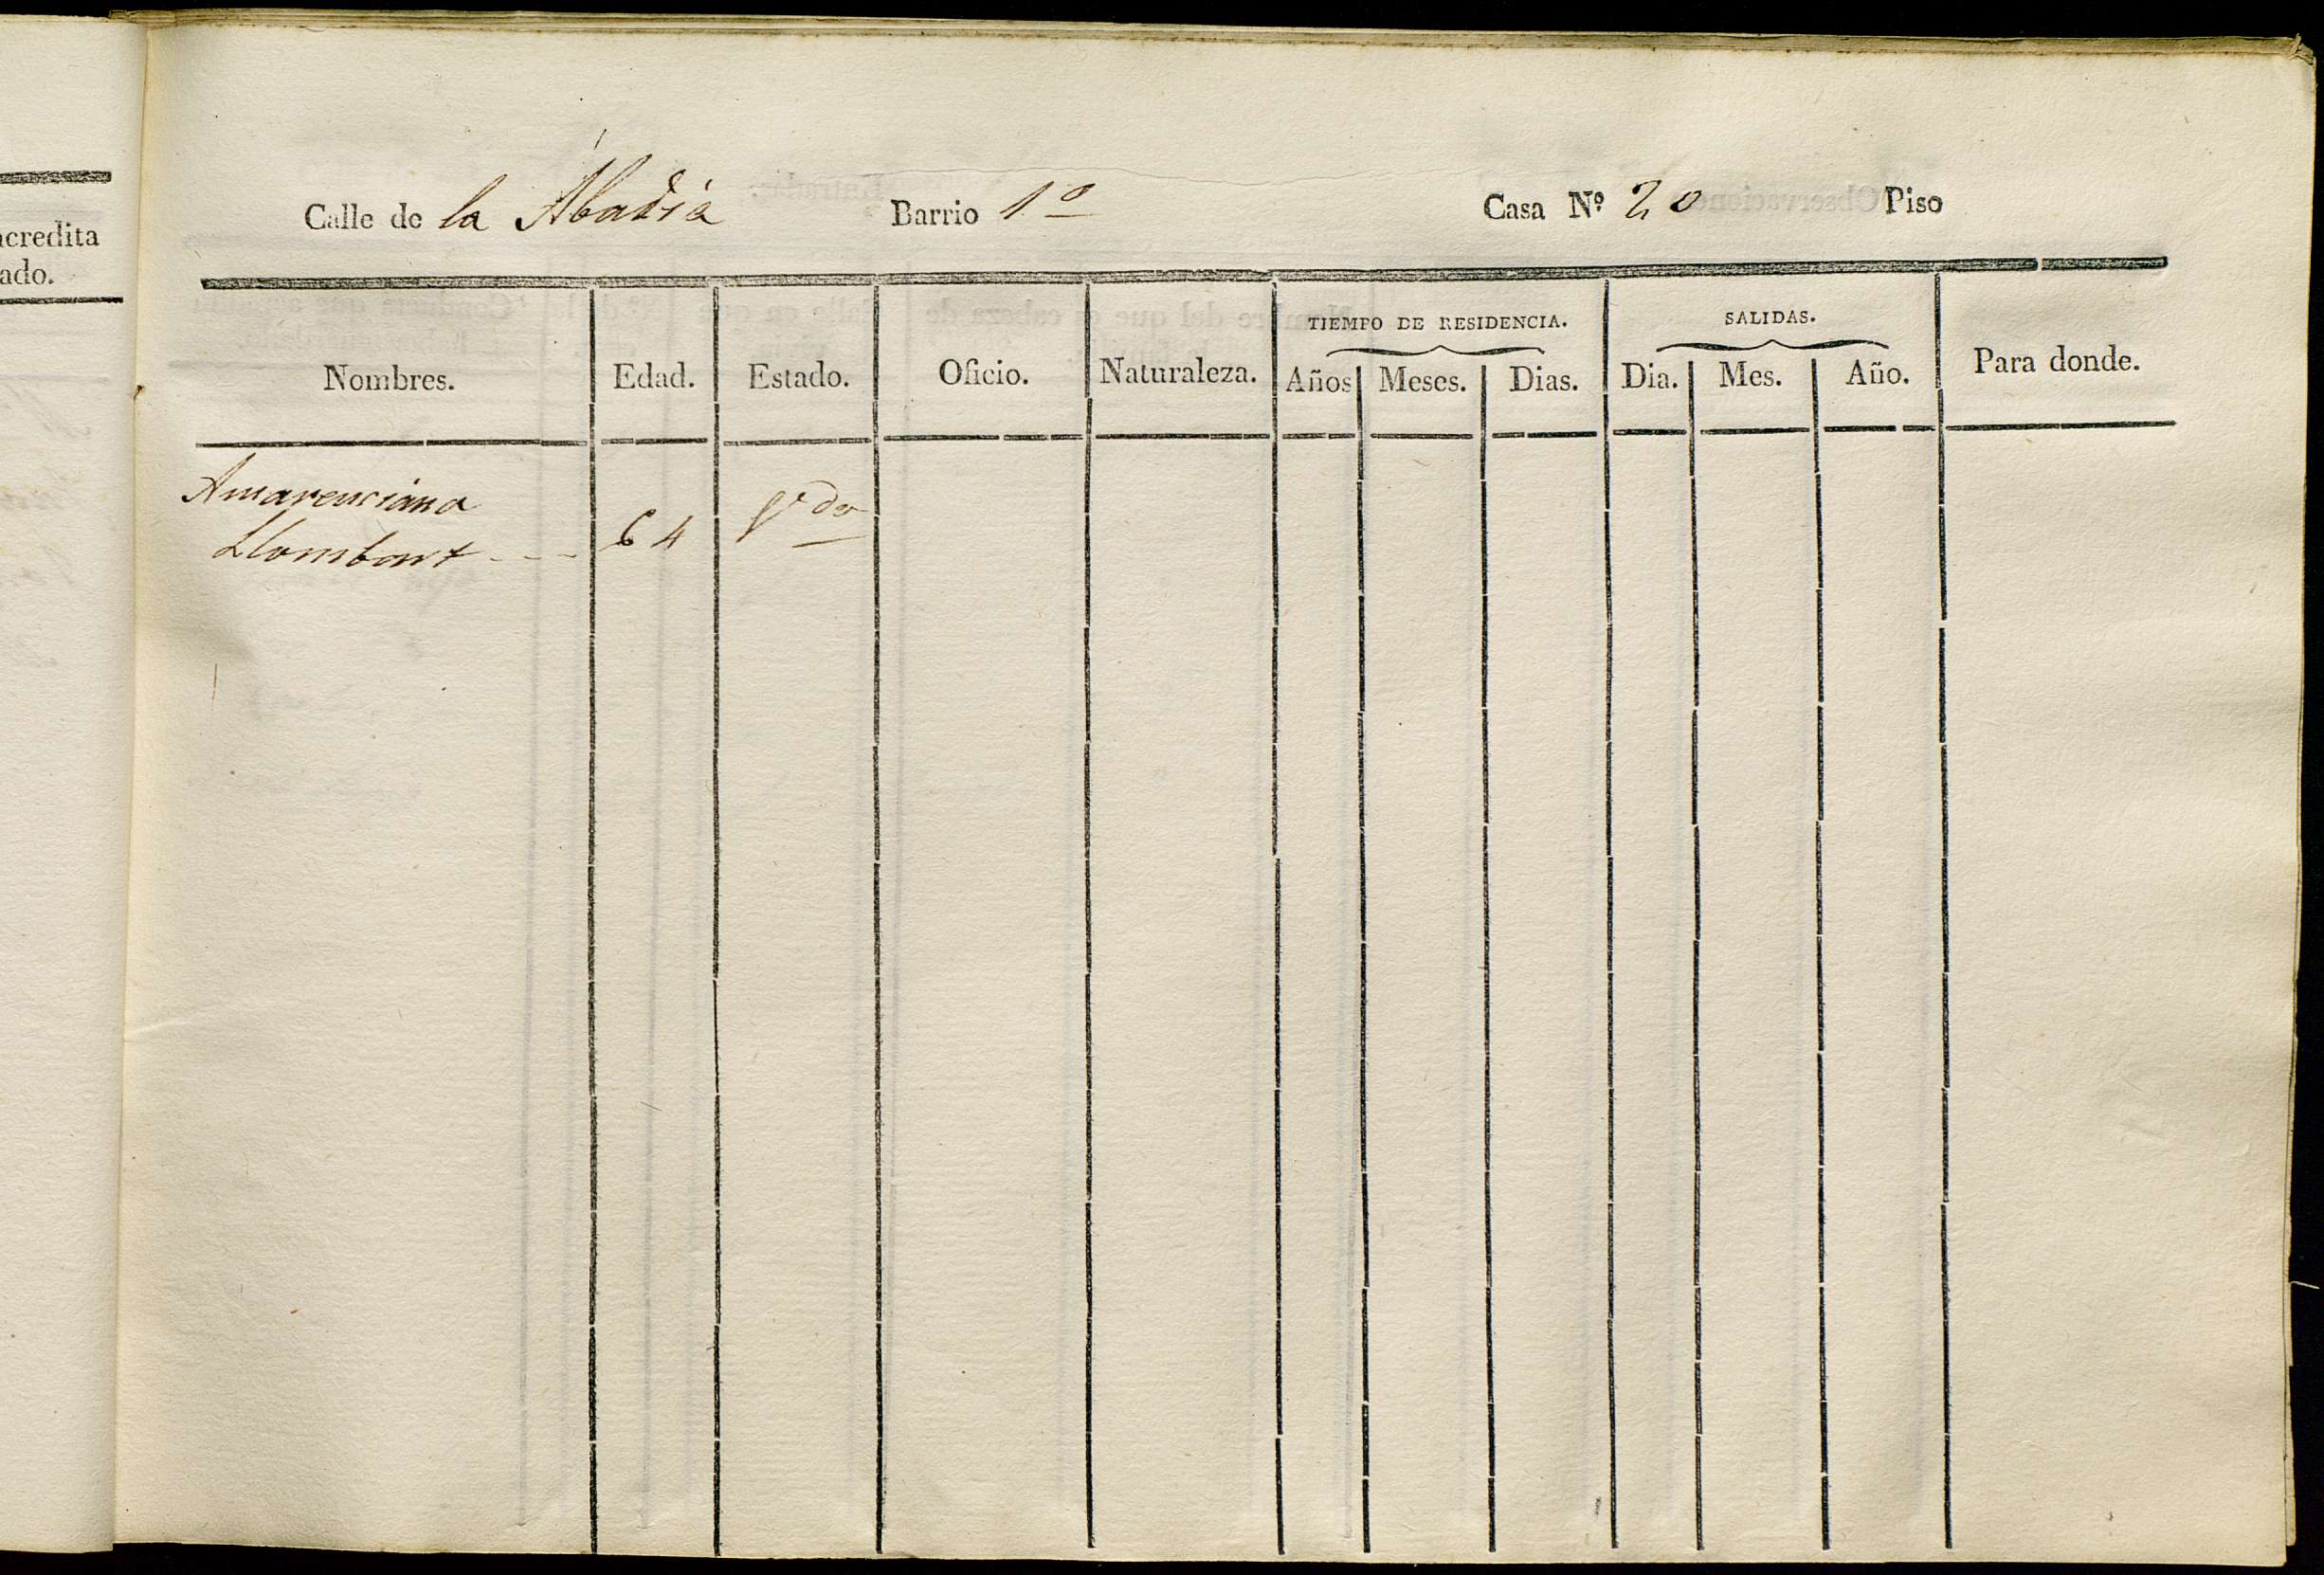 acredita
ado.
Calle de la Abadia Barrio 1º Casa Nº 20 Piso
TIEMPO DE RESIDENCIA. SALIDAS.
Nombres. Edad. Estado. Oficio. Naturaleza. Años Meses. Dias. Dia. Mes. Año. Para donde.
Amarenciana
Llombart - - - 64 Vda